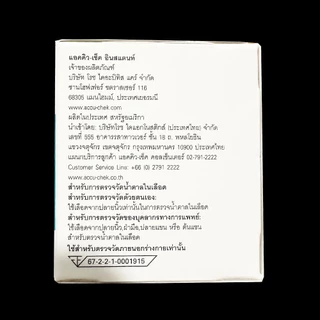 แอคคิว-เช็ค อินสแตนท์
เจ้าของผลิตภัณฑ์
บริษัท โรช ไดอะบีทิส แคร์ จำกัด
ซานโฮฟเฟอร์ ชตราสเซอร์ 116
68305 แมนไฮม์, ประเทศเยอรมนี
www.accu-chek.com
ผลิตในประเทศ สหรัฐอเมริกา
นำเข้าโดย: บริษัทโรช ไดแอกโนสติกส์ (ประเทศไทย) จำกัด
เลขที่ 555 อาคารรสาทาวเวอร์ ชั้น 18 ถ. พหลโยธิน
แขวงจตุจักร เขตจตุจักร กรุงเทพมหานคร 10900 ประเทศไทย
แผนกบริการลูกค้า แอคคิว-เช็ค คอลเซ็นเตอร์ 02-791-2222
Customer Service Line: +66 (0) 2791 2222
www.accu-chek.co.th
สำหรับการตรวจวัดน้ำตาลในเลือด
สำหรับการตรวจวัดด้วยตนเอง:
ใช้เลือดจากปลายนิ้วเท่านั้นในการตรวจน้ำตาลในเลือด
สำหรับการตรวจวัดของบุคลากรทางการแพทย์:
ใช้เลือดจากปลายนิ้ว,ฝ่ามือ,ปลายแขน หรือ ต้นแขน
สำหรับตรวจน้ำตาลในเลือด
ใช้สำหรับตรวจวัดภายนอกร่างกายเท่านั้น
67-2-2-1-0001915